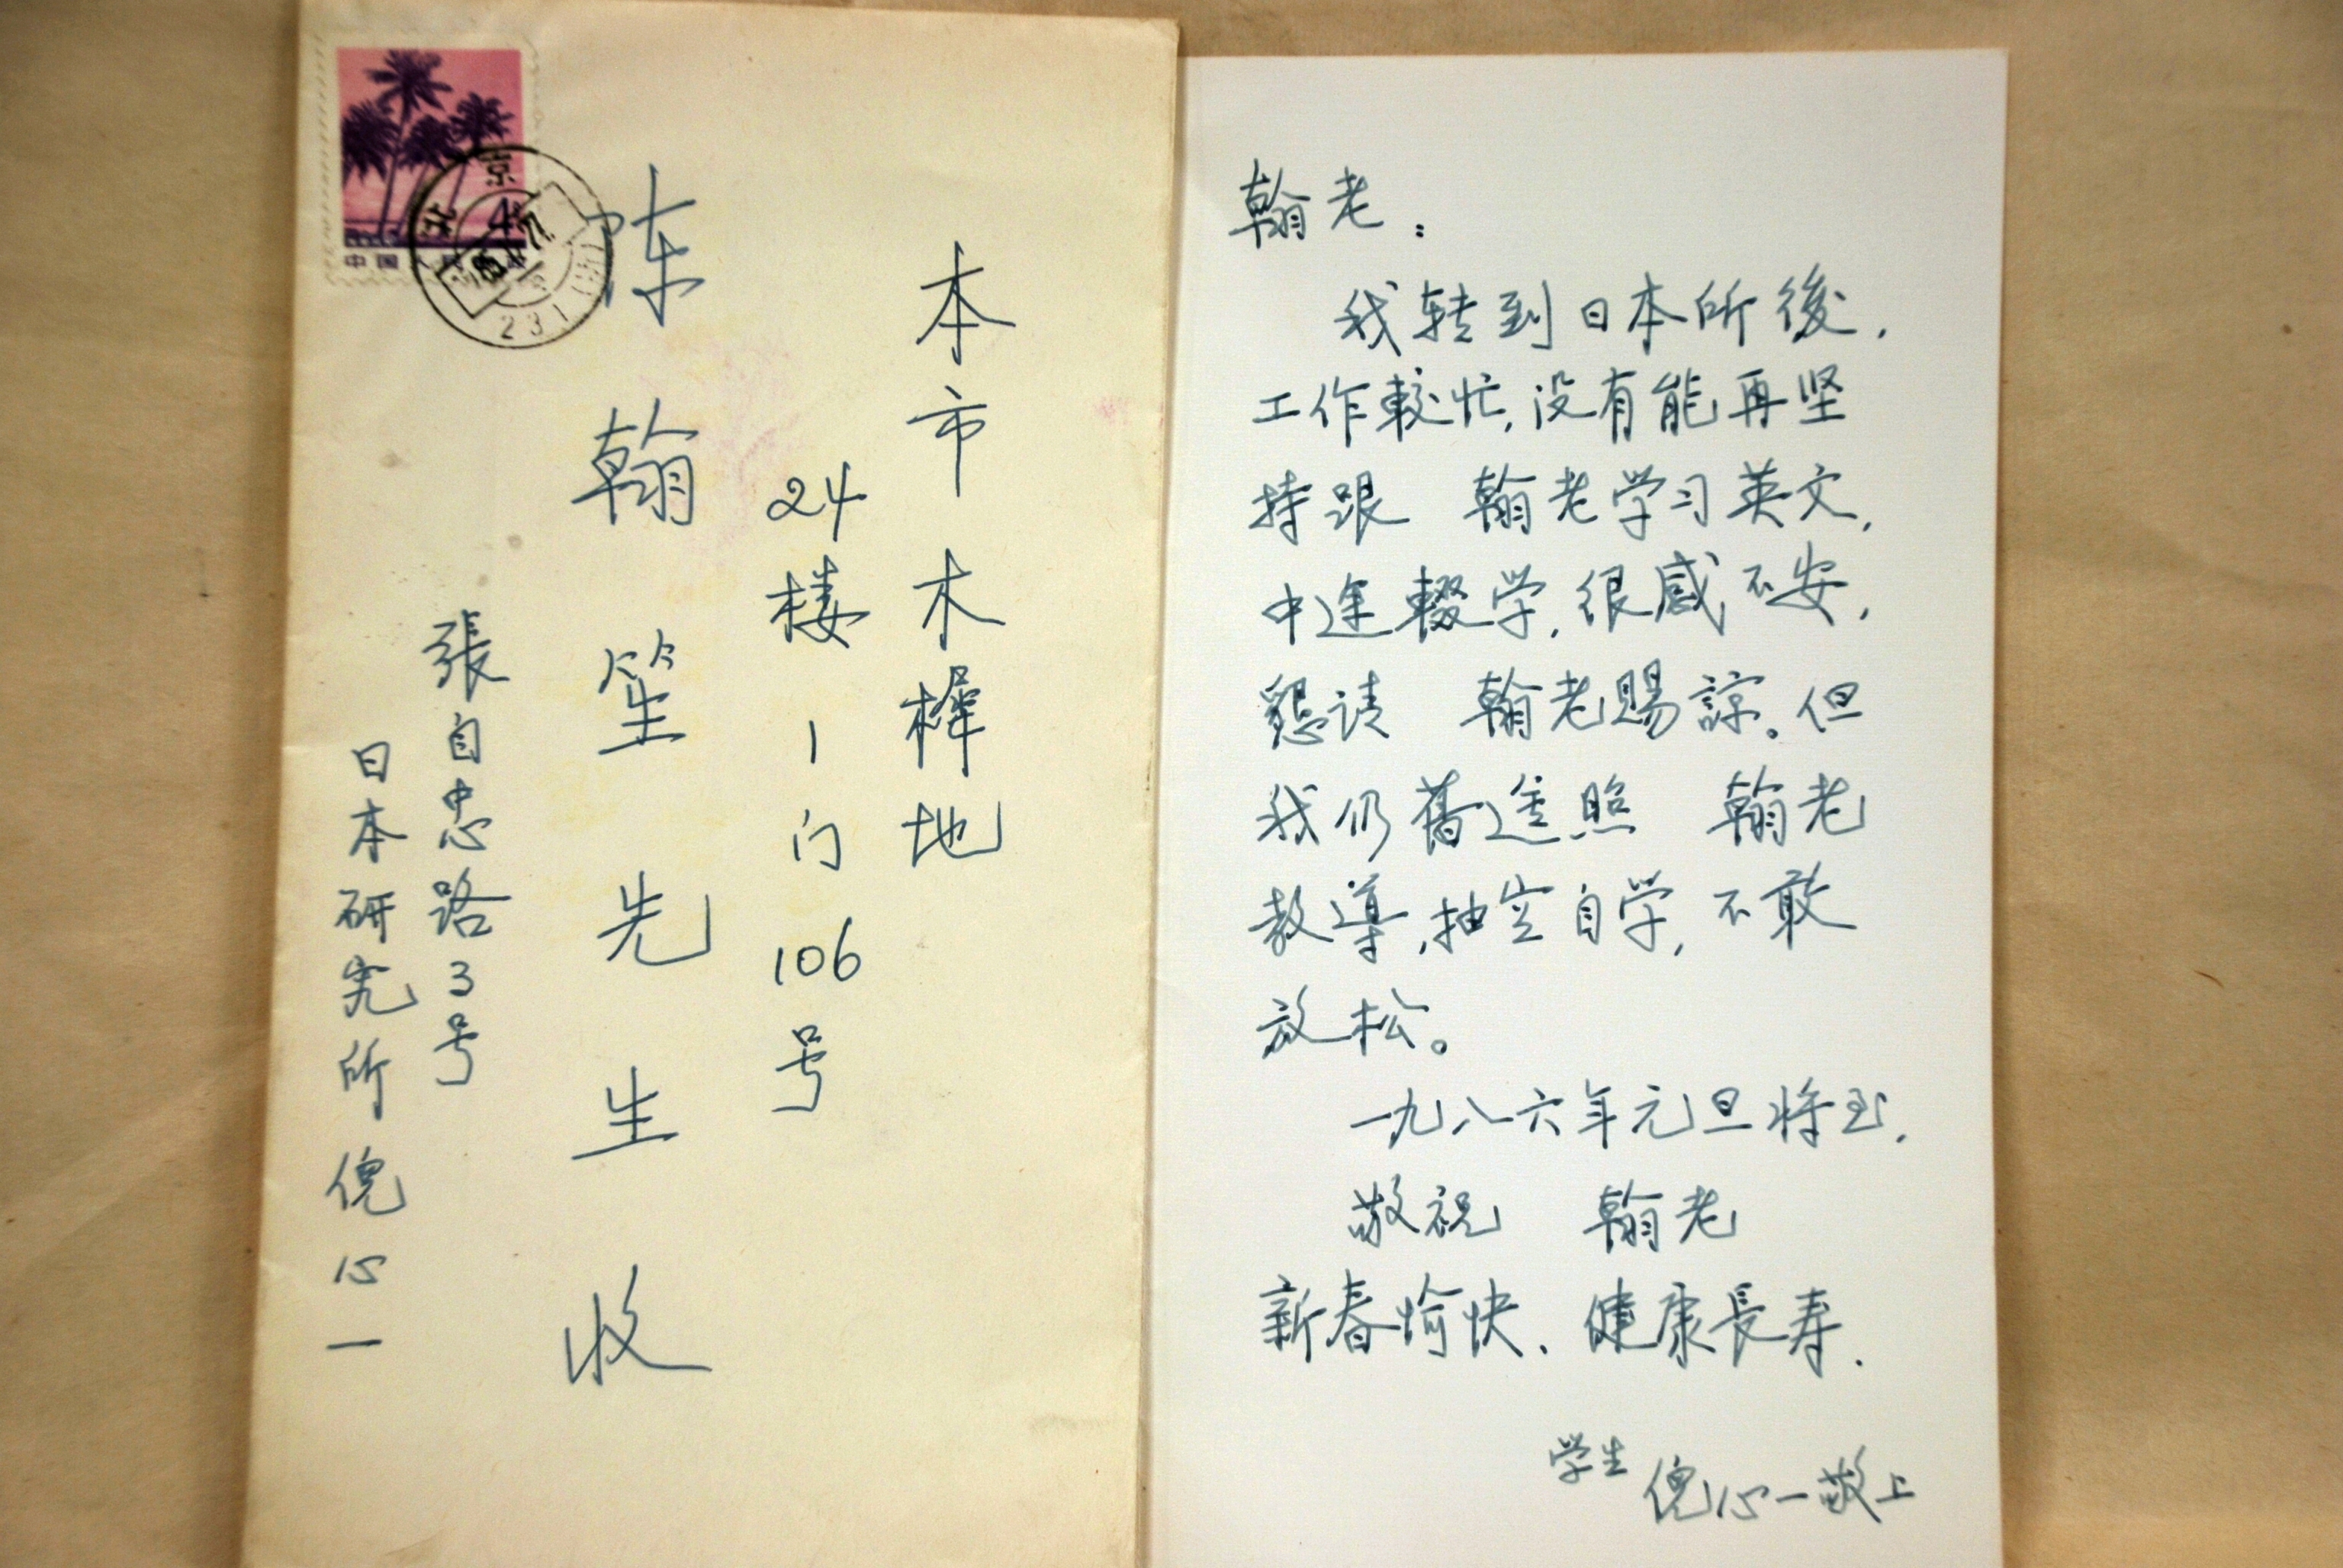 中国人民
北京
231
本市木樨地
24楼1门106号
陈翰笙先生收
張自忠路3号
日本研究所倪心一
翰老：
我转到日本所後，
工作較忙，没有能再坚
持跟 翰老学习英文，
中途輟学，很感不安，
懇请 翰老賜諒。但
我仍舊遵照 翰老
教導，抽空自学，不敢
放松。
一九八六年元旦将至，
敬祝 翰老
新春愉快、健康長寿．
学生 倪心一敬上